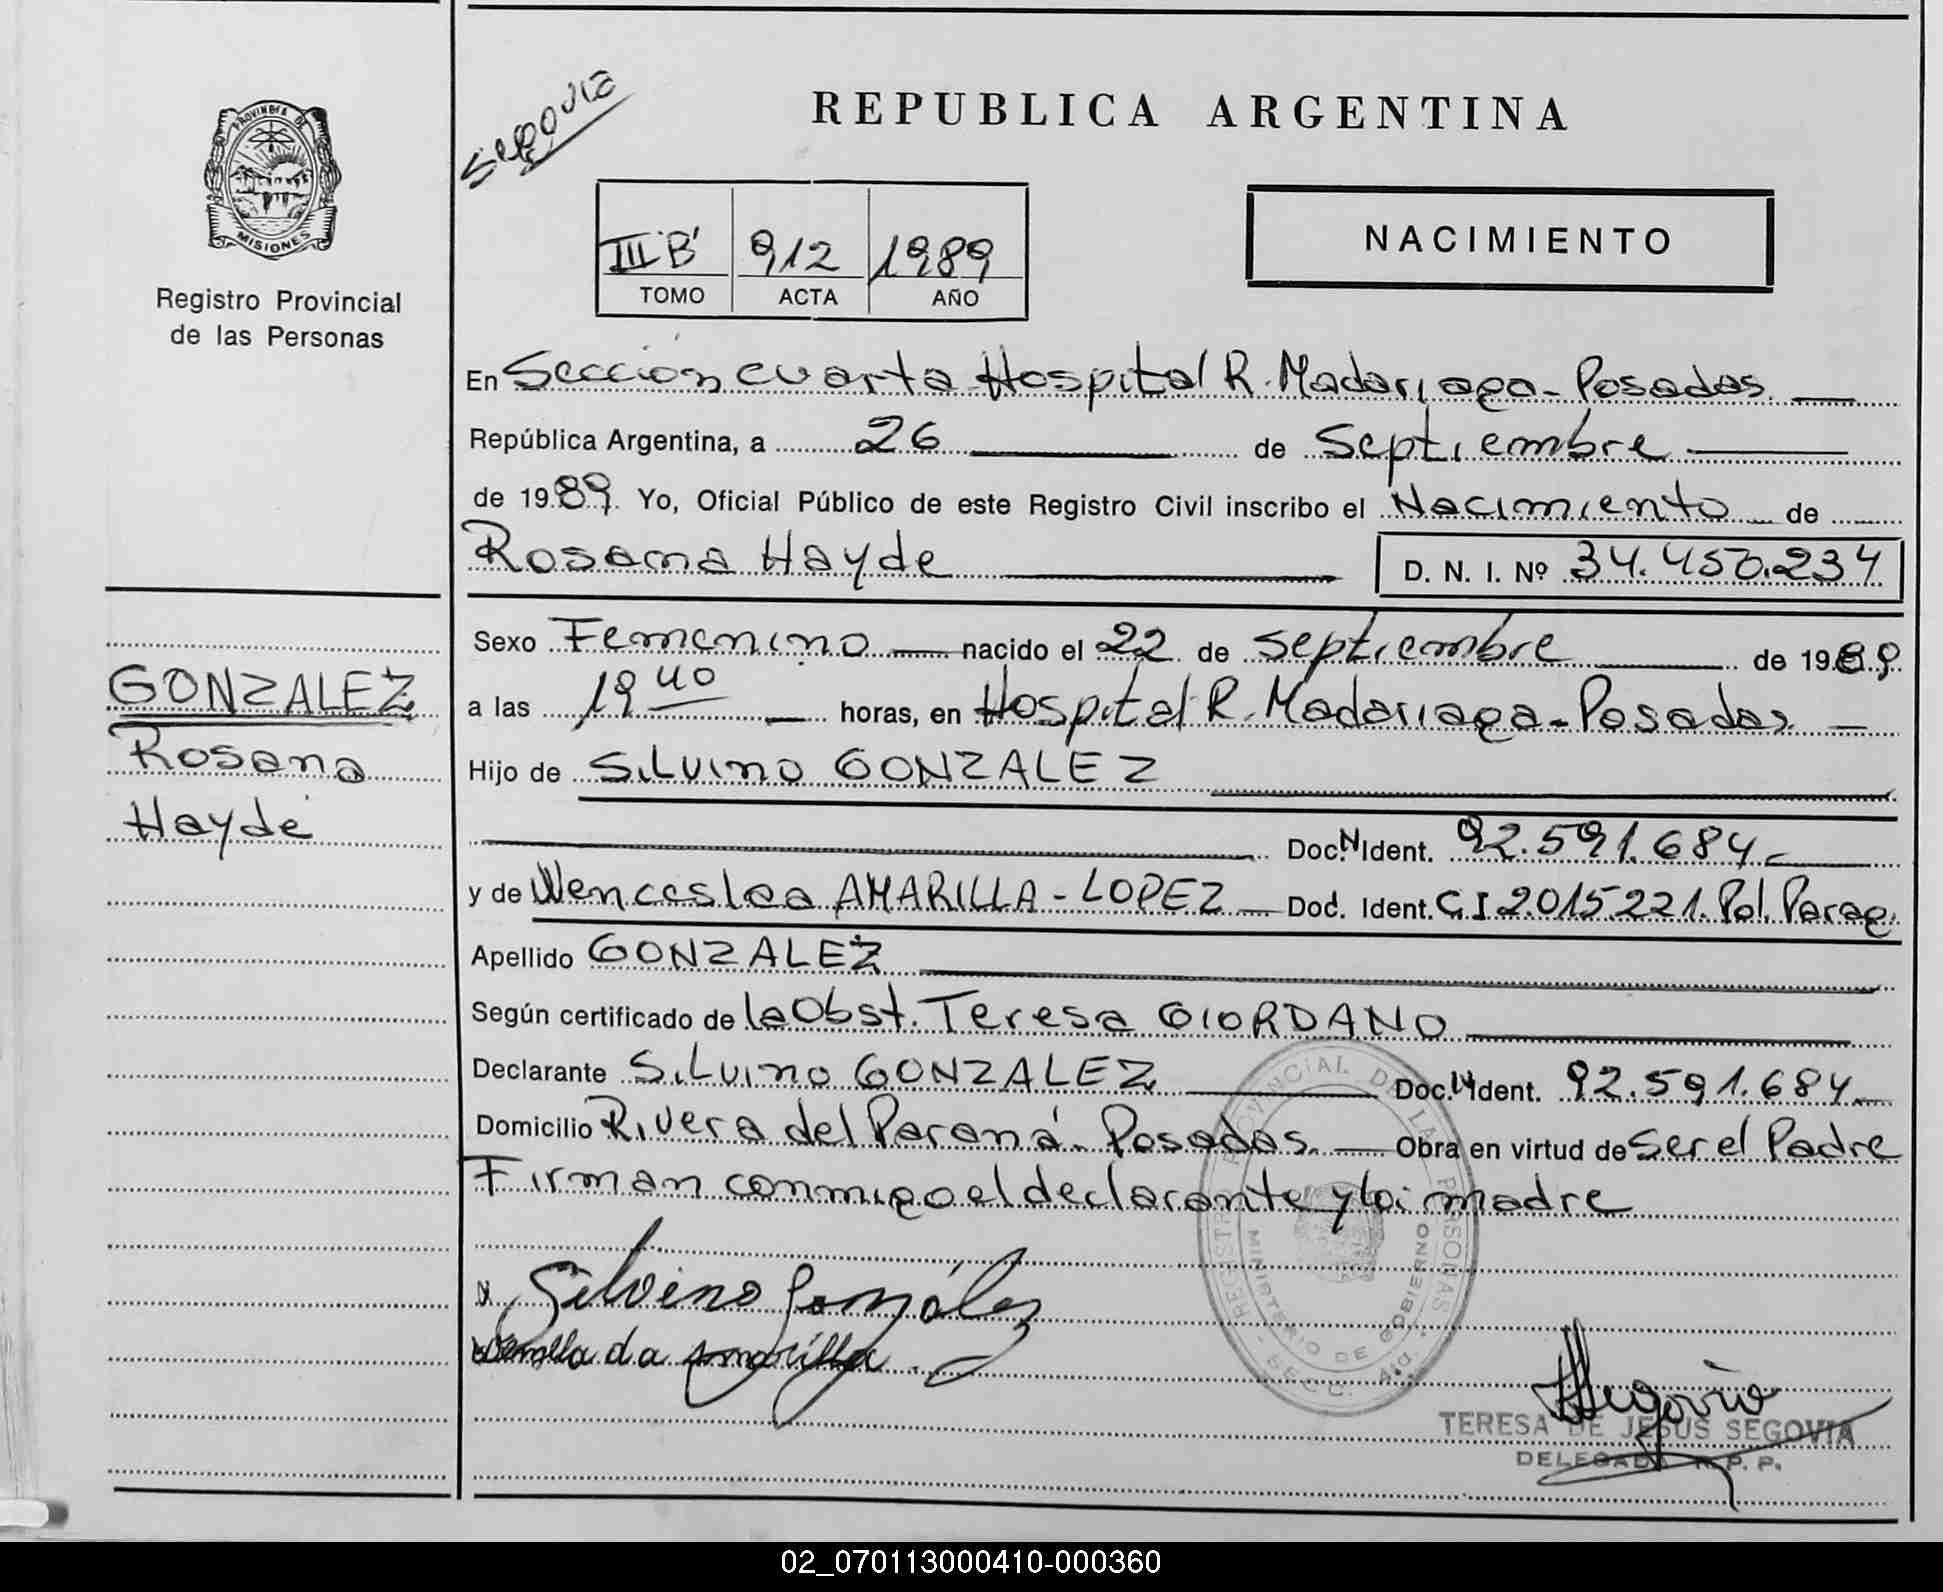 PROVINCIA DE
MISIONES
Registro Provincial
de las Personas
GONZALEZ
Rosana
Haydé
Segovia
REPUBLICA ARGENTINA
III"B" 912 1989
TOMO ACTA AÑO
NACIMIENTO
En Sección cuarta Hospital R. Madariaga - Posadas.
República Argentina, a 26 de Septiembre
de 1989. Yo, Oficial Público de este Registro Civil inscribo el Nacimiento de
Rosana Hayde D. N. I. Nº 34.450.234
Sexo Femenino nacido el 22 de septiembre de 1989
a las 19 40 horas, en Hospital R. Madariaga - Posadas
Hijo de Silvino GONZALEZ
Doc. N Ident. 92.591.684
y de Wenceslaa AMARILLA - LOPEZ Doc. Ident. C.I 2.015.221. Pol. Parag.
Apellido GONZALEZ
Según certificado de la Obst. Teresa GIORDANO
Declarante Silvino GONZALEZ Doc. N Ident. 92.591.684
Domicilio Rivera del Paraná - Posadas. Obra en virtud de Ser el Padre
Firman conmigo el declarante y la madre
Silvino González
Amarilla
REGISTRO PROVINCIAL DE LAS PERSONAS
MINISTERIO DE GOBIERNO
SECC. 4ta.
Segovia
TERESA DE JESUS SEGOVIA
DELEGADA R. P. P.
02_070113000410-000360